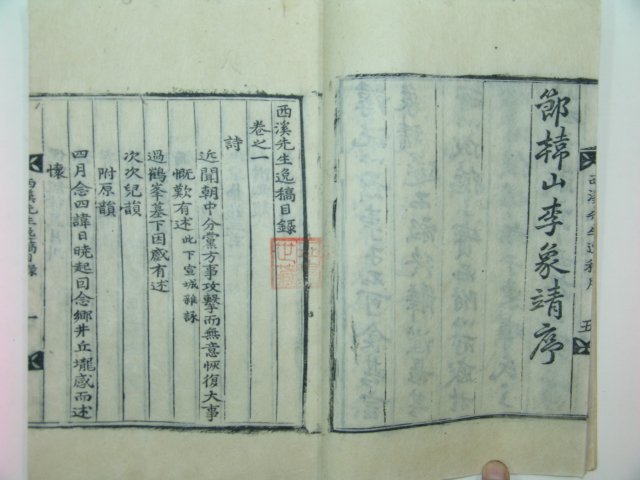 節韓山李象靖序
西溪先生逸稿序 五
西溪先生逸稿目錄
卷之一
詩
近聞朝中分黨方事攻擊而無意恢復大事
慨歎有述 此下宣城雜詠
過鶴峯墓下因感有述
次次兒韻
附原韻
四月念四諱日曉起回念鄉井丘壠感而述
懷
西溪先生逸稿目錄 一